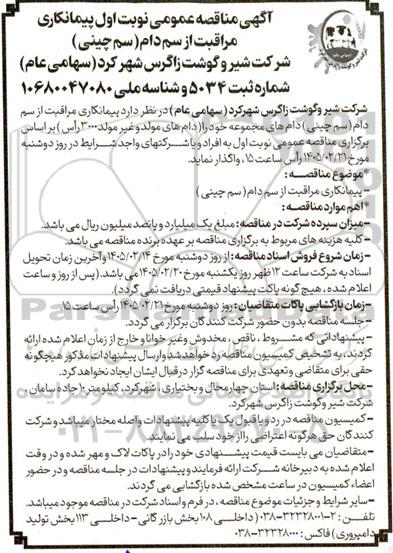 آگهی مناقصه عمومی نوبت اول پیمانکاری
مراقبت از سم دام (سم چینی)
شرکت شیر و گوشت زاگرس شهرکرد (سهامی عام)
شماره ثبت ۵۰۳۴ و شناسه ملی ۱۰۶۸۰۰۴۷۰۸۰
شرکت شیر و گوشت زاگرس شهرکرد (سهامی عام) در نظر دارد پیمانکاری مراقبت از سم
دام (سم چینی) دام های مجموعه خود را (دام های مولد و غیر مولد ۳۰۰۰ رأس) بر اساس
برگزاری مناقصه عمومی نوبت اول به افراد و یا شرکتهای واجد شرایط در روز دوشنبه
مورخ ۱۴۰۵/۰۲/۲۱ رأس ساعت ۱۵، واگذار نماید.
*موضوع مناقصه:
- پیمانکاری مراقبت از سم دام (سم چینی)
*اهم موارد مناقصه:
- میزان سپرده شرکت در مناقصه: مبلغ یک میلیارد و پانصد میلیون ریال می باشد.
- کلیه هزینه های مربوط به برگزاری مناقصه بر عهده برنده مناقصه می باشد.
- زمان شروع فروش اسناد مناقصه: از روز دوشنبه مورخ ۱۴۰۵/۰۲/۱۴ و آخرین زمان تحویل
اسناد به شرکت ساعت ۱۲ ظهر روز یکشنبه مورخ ۱۴۰۵/۰۲/۲۰ می باشد. (پس از روز و ساعت
اعلام شده، هیچ گونه پاکت پیشنهاد قیمتی دریافت نمی گردد).
- زمان بازگشایی پاکات متقاضیان: روز دوشنبه مورخ ۱۴۰۵/۰۲/۲۱ رأس ساعت ۱۵
- جلسه مناقصه بدون حضور شرکت کنندگان برگزار می گردد.
- پیشنهاداتی که مشروط، ناقص، مخدوش و غیر خوانا و خارج از زمان اعلام شده ارائه
گردند، به تشخیص کمیسیون مناقصه رد خواهد شد و ارسال پیشنهادات مذکور هیچگونه
حقی برای متقاضی و تعهدی برای مناقصه گزار در قبال ایشان ایجاد نخواهد کرد.
- محل برگزاری مناقصه: استان چهارمحال و بختیاری، شهرکرد، کیلومتر ۱۰ جاده سامان،
شرکت شیر و گوشت زاگرس شهرکرد.
- کمیسیون مناقصه در رد و یا قبول یک یا کلیه پیشنهادات واصله مختار میباشد و شرکت
کنندگان حق هرگونه اعتراضی را از خود سلب می نمایند.
- متقاضیان می بایست قیمت پیشنهادی خود را در پاکات لاک و مهر شده و در وقت
اعلام شده به دبیرخانه شرکت ارائه فرمایند و پیشنهادات در جلسه مناقصه و در حضور
اعضاء کمیسیون در ساعت مشخص شده بازگشایی می گردند.
- سایر شرایط و جزئیات موضوع مناقصه، در فرم و اسناد شرکت در مناقصه موجود میباشد.
تلفن: ۲-۳۲۳۲۸۰۰۱-۰۳۸ (داخلی ۱۰۸ بخش بازرگانی - داخلی ۱۱۳ بخش تولید
دامپروری) فاکس: ۳۲۳۲۸۰۰۰-۰۳۸